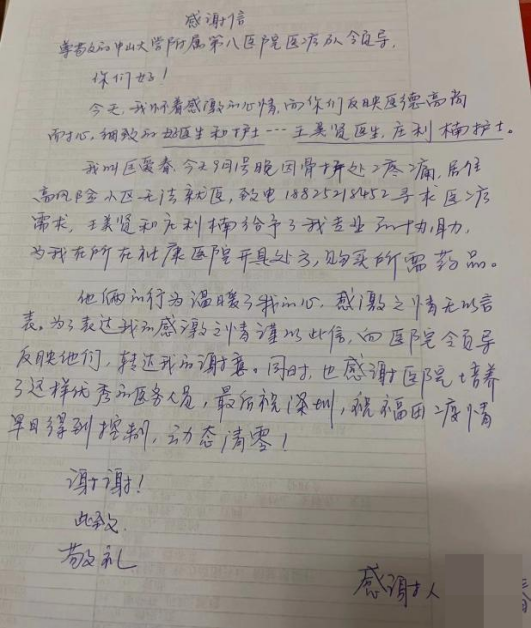 感谢信
尊敬的中山大学附属第八医院医疗队令领导,
你们好!
今天,我怀着感激的心情,向你们反映医德高尚
而耐心,细致的好医生和护士…王美贤医生,庄利楠护士。
我叫区爱春,今天9月1号晚因骨折处疼痛,居住
高风险小区无法就医,致电18825218452寻求医疗
需求,王美贤和庄利楠给予了我专业的协助,
为我在所在社康医院开具处方,购买所需药品。
他俩的行为温暖了我的心,感激之情无以言
表。为了表达我的感激之情谨以此信,向医院领导
反映他们,转达我的谢意。同时,也感谢医院培养
了这样优秀的医务人员,最后祝深圳,祝福田疫情
早日得到控制,动态清零!
谢谢!
此致
敬礼
感谢人